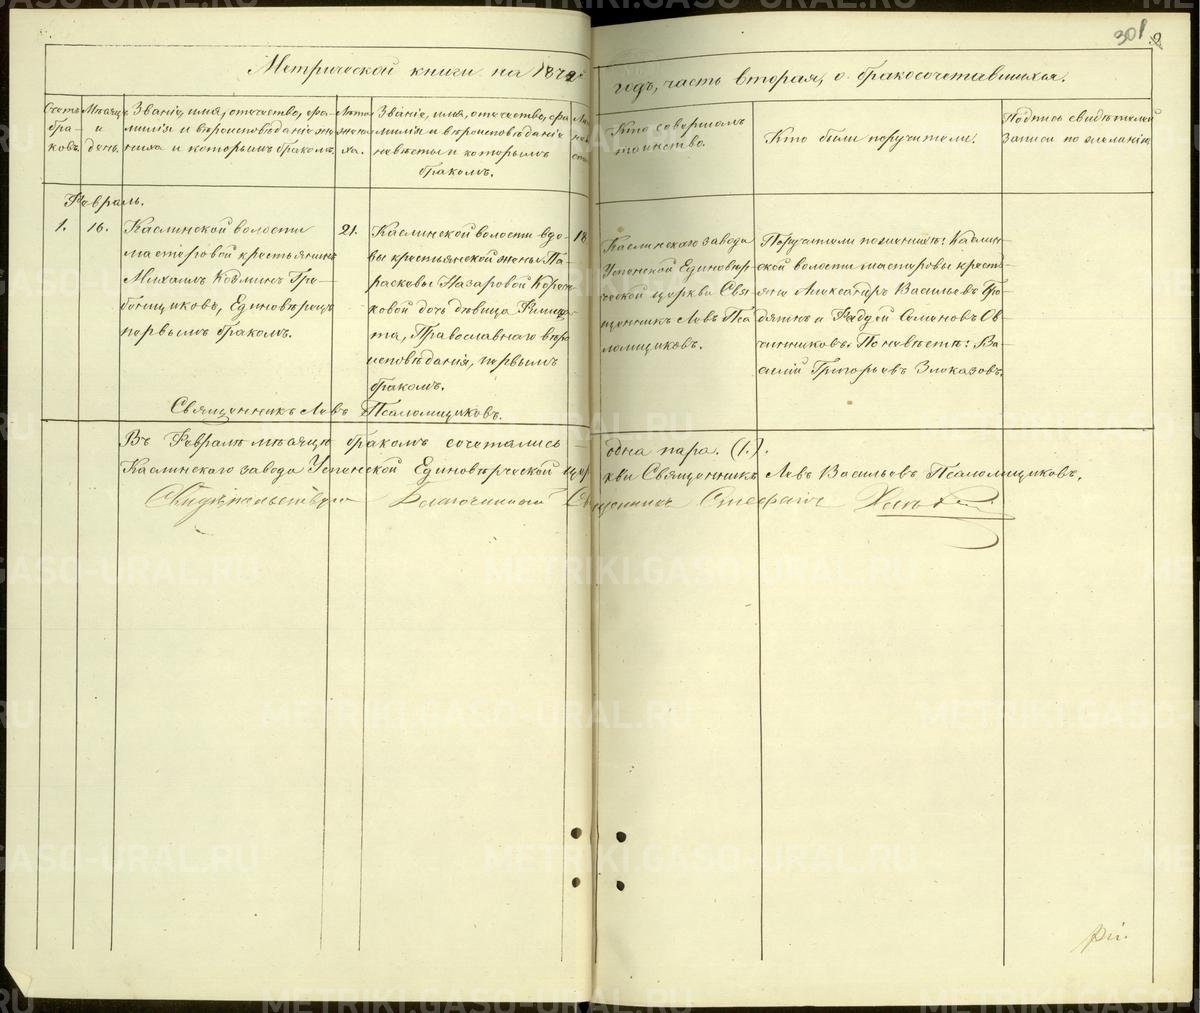 301
Метрической книги на 1872
годъ, часть вторая, о бракосочетавшихся.
Счетъ бра- ковъ.
Мѣсяцъ и день.
Званіе, имя, отчество, фа-
милія и вѣроисповѣданіе же-
ниха и которымъ бракомъ.
Лѣта жени- ха.
Званіе, имя, отчество, фа-
милія и вѣроисповѣданіе
невѣсты и которымъ
бракомъ.
Кто совершалъ
таинство.
Кто были поручители.
Подпись свидѣтелей
записи по желанію
Февраль.
1.
16.
Каслинской волости
мастеровой крестьянинъ
Михаилъ Козминъ Гре-
бенщиковъ, Единовѣрецъ
первымъ бракомъ.
21.
Каслинской волости вдо-
вы крестьянской жены Па-
раскевы Назаровой
ковой дочь дѣвица
та, Православнаго вѣро
исповѣданія, первымъ
бракомъ.
18
Каслинскаго завода
Успенской Единовѣр-
ческой церкви Свя
щенникъ Левъ Пса
ломщиковъ.
Поручители по женихѣ: Каслин-
ской волости мастеровы кресть
яне Александръ Васильевъ
и Фадей Семеновъ Ов-
чинниковъ. По невѣстѣ: Ва-
силій Григорьевъ Злоказовъ.
Священникъ Левъ Псаломщиковъ.
Въ Февралѣ мѣсяцѣ бракомъ сочетались одна пара. (1.).
Каслинскаго завода Успенской Единовѣрческой цер кви Священникъ Левъ Васильевъ Псаломщиковъ.
Свидѣтельствую Благочинный Священникъ Стефанъ
METRIKI.GASO-URAL.RU